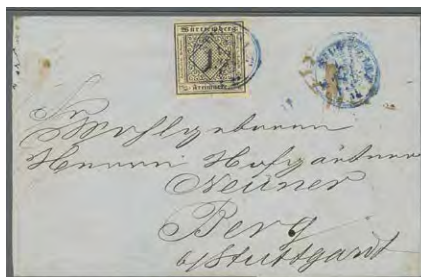 Württemberg
1
Freimarke
Sr
Wohlgeboren
Herrn Hofgärtner
Neuner
Berg
b/Stuttgart